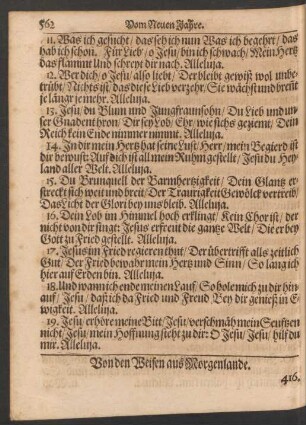 562 Vom Neuen Jahre.
11. Was ich gesucht / das seh ich nun Was ich begehrt / das
hab ich schon. Für Lieb / o Jesu / bin ich schwach / Mein Hertz
das flammt und schreyt dir nach. Alleluja.
12. Wer dich / o Jesu / also liebt / Der bleibt gewiß wol unbe-
trübt / Nichts ist / das diese Lieb verzehr / Sie wächst und brennt
je länger je mehr. Alleluja.
13. Jesu / du Blum und Jungfrauensohn / Du Lieb und un-
ser Gnadenthron / Dir sey Lob / Ehr / wie sichs geziemt / Dein
Reich kein Ende nimmer nimmt. Alleluja.
14. In dir mein Hertz hat seine Lust / Herr / mein Begierd ist
dir bewust: Auf dich ist all mein Ruhm gestellt / Jesu du Hey-
land aller Welt. Alleluja.
15. Du Brunquell der Barmhertzigkeit / Dein Glantz er-
streckt sich weit und breit / Der Traurigkeit Gewölck vertreib /
Das Licht der Glori bey uns bleib. Alleluja.
16. Dein Lob im Himmel hoch erklingt / Kein Chor ist / der
nicht von dir singt: Jesus erfreut die gantze Welt / Die er bey
Gott zu Fried gestellt. Alleluja.
17. Jesus im Fried regieren thut / Der übertrifft alls zeitlich
Gut / Der Fried bewahr mein Hertz und Sinn / So lang ich
hier auf Erden bin. Alleluja.
18. Und wann ich ende meinen Lauf / So hole mich zu dir hin-
auf / Jesu / daß ich da Fried und Freud Bey dir genieß in E-
wigkeit. Alleluja.
19. Jesu / erhöre meine Bitt / Jesu / verschmäh mein Seuftzen
nicht / Jesu / mein Hoffnung sieht zu dir: O Jesu / Jesu / hilf du
mir. Alleluja.
Von den Weisen aus Morgenlande.
416.